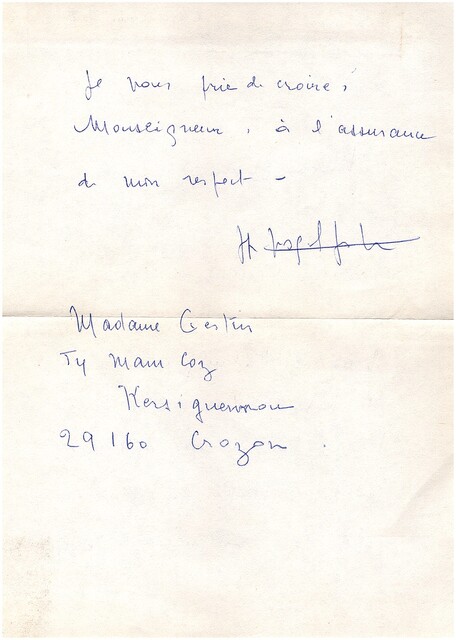 Je vous prie de croire,
Monseigneur, à l'assurance
de mon respect -
Madame Gestin
Ty Mam Coz
Kersiguenou
29160 Crozon.